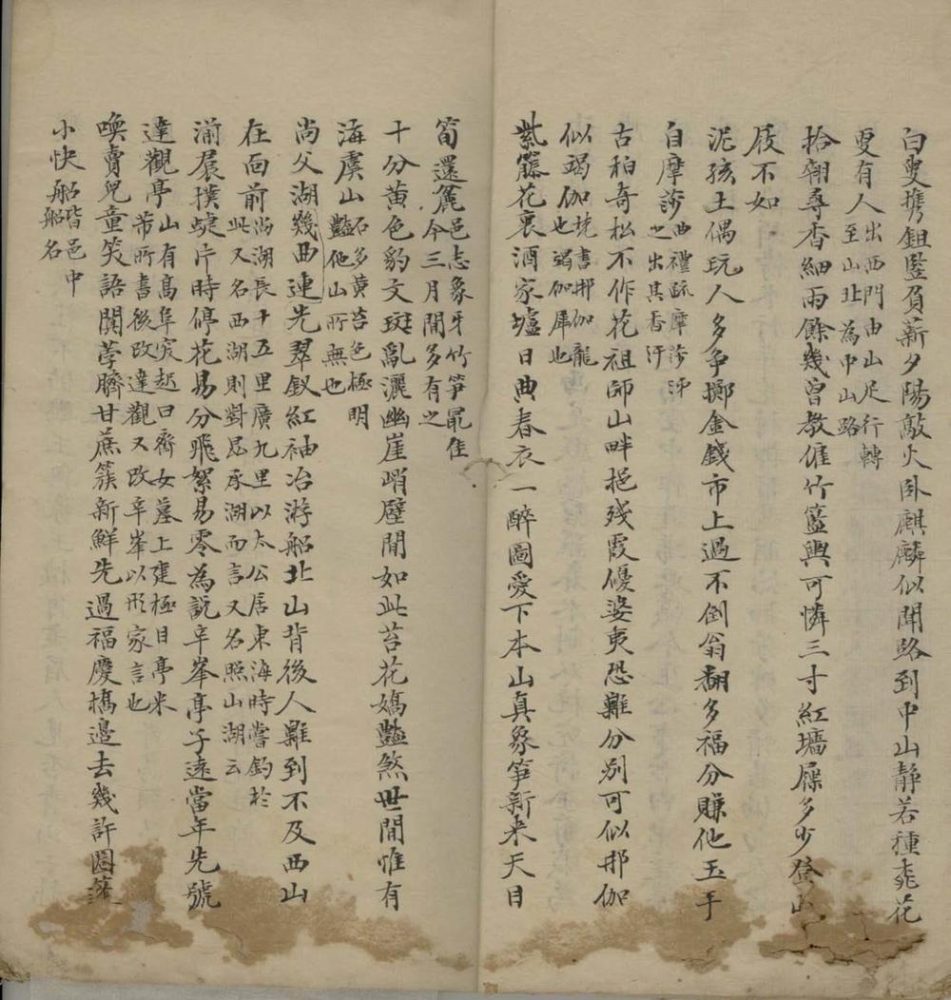 白叟攜鉏豎負薪夕陽敲火臥麒麟似聞路到中山靜若種桃花
更有人出西門由山尺行轉至山北為中山路
拾翠尋香細雨餘幾曾教僱竹籃輿可憐三寸紅墻屧多少登山
屐不如
泥孩土偶玩人多爭擲金錢市上過不倒翁翻多福分賺他玉手
自摩莎曲禮疏摩莎汙之出其香汙
古柏奇松不作花祖師山畔挹殘霞優婆夷恐難分別可似那伽
似竭伽梵書那伽龍也竭伽犀也
紫籐花裏酒家壚日典春衣一醉圖愛下本山真象笋新來天目
筍還麄邑志象牙竹笋最佳今三月間多有之
十分黃色豹文斑亂灑幽崖峭壁間如此苔花嬌豔煞世間惟有
海虞山石多黃苔色極明豔他山所無也
尚父湖幾曲連先翠釵紅袖冶游船北山背後人難到不及西山
在面前尚湖長十五里廣九里以太公居東海時嘗釣於此又名西湖則對昆承湖而言又名照山湖云
湔裠撲蜨片時停花易分飛絮易零為説辛峯亭子遠當年先號
達觀亭山有高阜突起曰齊女墓上建極目亭米芾所書後改達觀又改辛峯以形家言也
喚賣兒童笑語閧荸臍甘蔗簇新鮮先過福慶橋邊去幾許
小快船船皆邑中船名